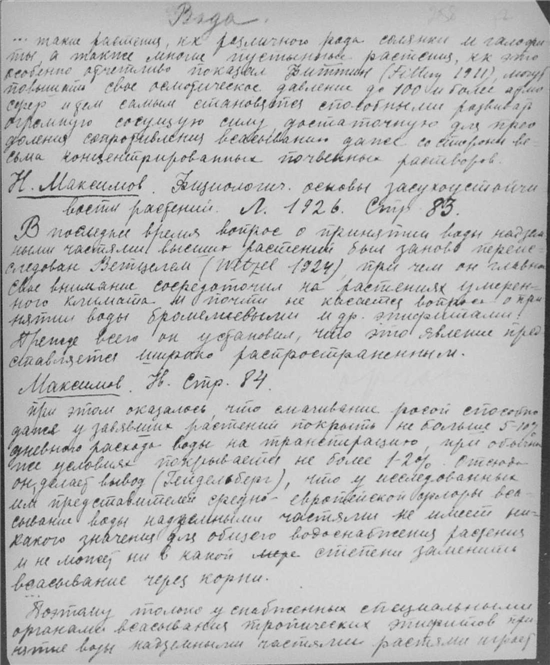 Вода.
... такие растения, кк различного рода солянки и галофи-
ты, а также многие пустынные растения, кк это
особенно отчетливо показал Фиттинг (Fitting 1911), могут
повышать свое осмотическое давление до 100 и более атмо-
сфер и тем самым становятся способными развивать
огромную сосущую силу, достаточную для прео-
доления сопротивления всасыванию даже со стороны ве-
сьма концентрированных почвенных растворов.
Н. Максимов. Физиологич. основы засухоустойчи-
вости растений. Л. 1926. Стр. 83.
В последнее время вопрос о принятии воды надзем-
ными частями высших растений был заново переис-
следован Ветцелем (Wetzel 1924), при чем он главное
свое внимание сосредоточил на растениях умерен-
ного климата и почти не касается вопроса о при-
нятии воды бромелиевыми и др. эпифитами!
Прежде всего он установил, что это явление пред-
ставляется широко распространенным.
Максимов. Н. Стр. 84.
При этом оказалось, что смачивание росой способно
даже у завявших растений покрыть не больше 5-10%
дневного расхода воды на транспирацию, при обычных
же условиях покрывается не более 1-2%. Отсюда
он делает вывод (Гейдельберг), что у исследованных
им представителей средне-европейской флоры вса-
сывание воды надземными частями не имеет ни-
какого значения для общего водоснабжения растения
и не может ни в какой мере степени заменить
всасывание через корни.
... Поэтому только у снабженных специальными
органами всасывания тропических эпифитов при-
нятие воды надземными частями растями играет